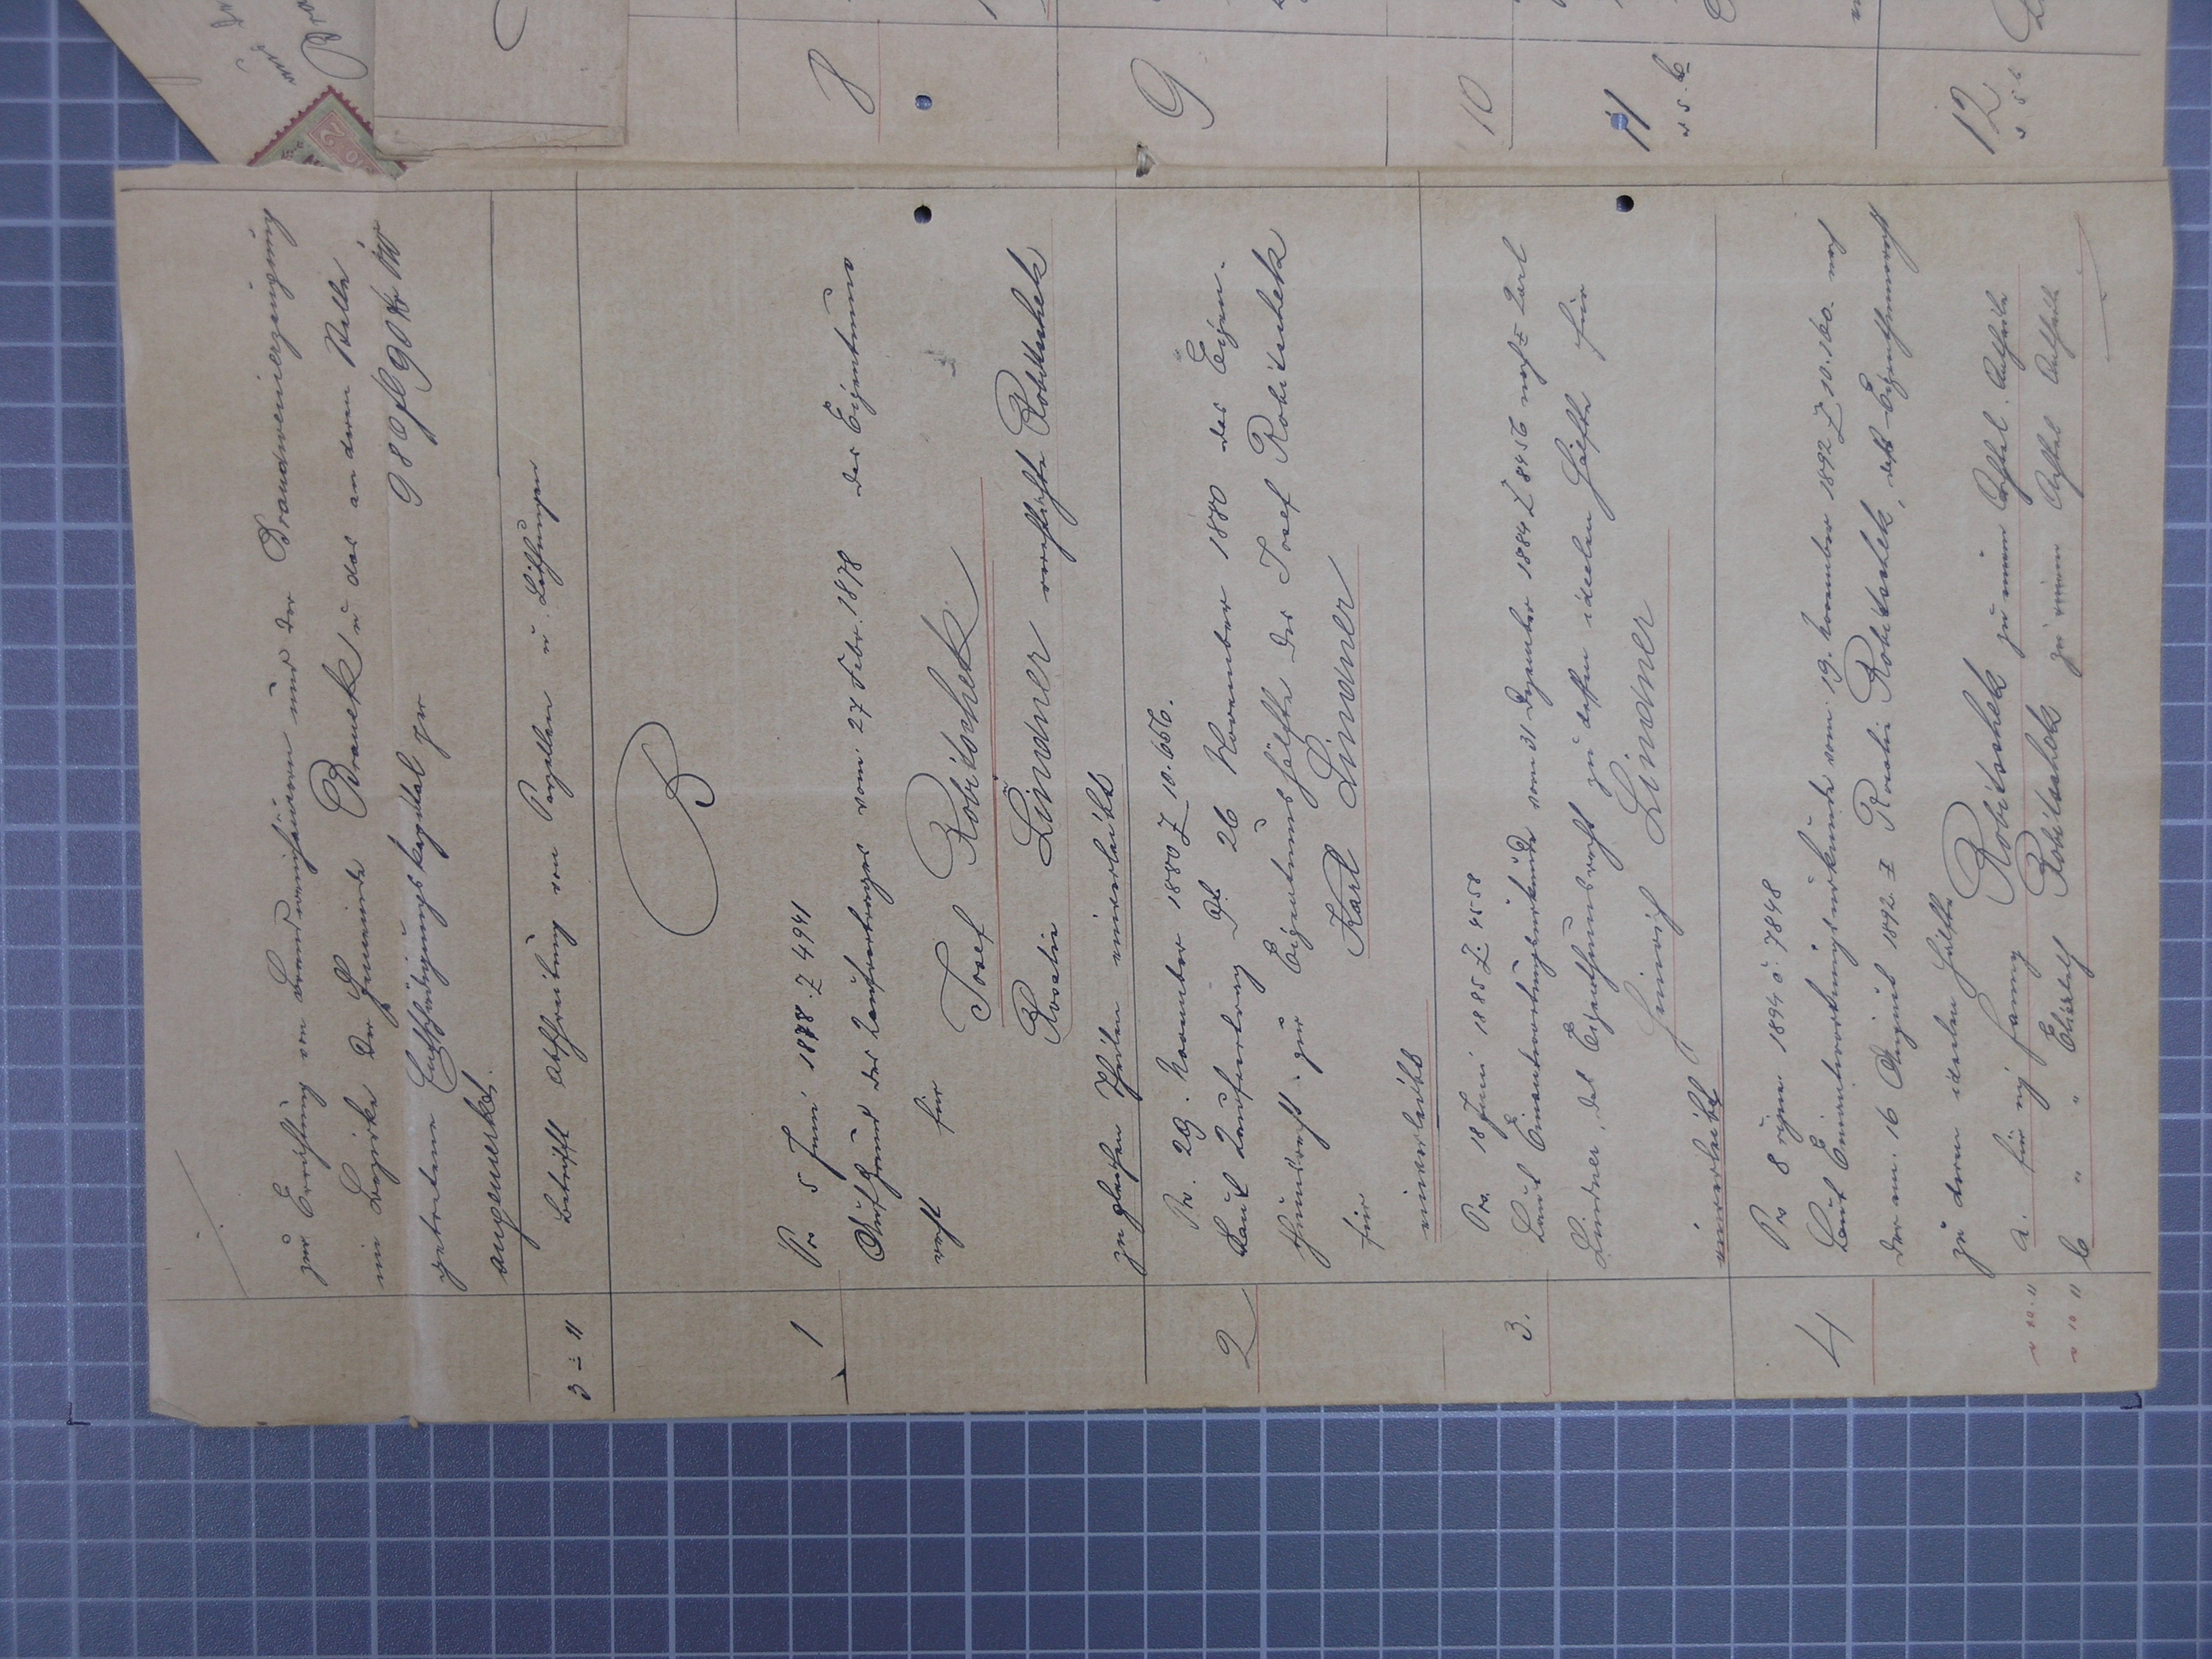 zur Erzeugung von Branntwein und der Branntweinerzeugung
im Bezirke der Gemeinde Branek u das an deren Stelle
getretene Entschädigungskapital per 980 fl 90 kr ö W
angemerkt.
3 - 11 Betrifft Abschreibung von Parzellen u. Löschungen
B
1 Pr. 5 Juni 1878. Z 4941
Auf Grund des Kaufvertrages vom 27 Febr. 1878 das Eigentums
recht für Josef Robitschek
Rosalie Lindner verehlichte Robitschek
zu gleichen Theilen einverleibt
2 Pr. 29. November 1880 Z 10.656.
Laut Kaufvertrag dt. 26 November 1880 das Eigen-
thumsrecht zur Eigentumshälfte des Josef Robitschek
für Karl Lindner
einverleibt
3. Pr. 18 Juni 1885 Z. 4558
Laut Einantwortungsurkunde vom 31 Dezember 1884 Z 8456 nach Karl
Lindner, das Eigenthumsrecht zu dessen ideelen Hälfte für
Heinrich Lindner
einverleibt
4 Pr 8 1894 7848
Laut Einantwortungsurkunde vom 19. November 1892 Z 10.160. nach
der am 16 August 1892 Rosalie Robitschek, das Eigenthumsrecht
zu deren idealen Hälfte
a. für Fanny Robitschek zu einem Achtel Antheile
b " " Robitschek zu einem Achtel Antheile
8
9
10
11
12